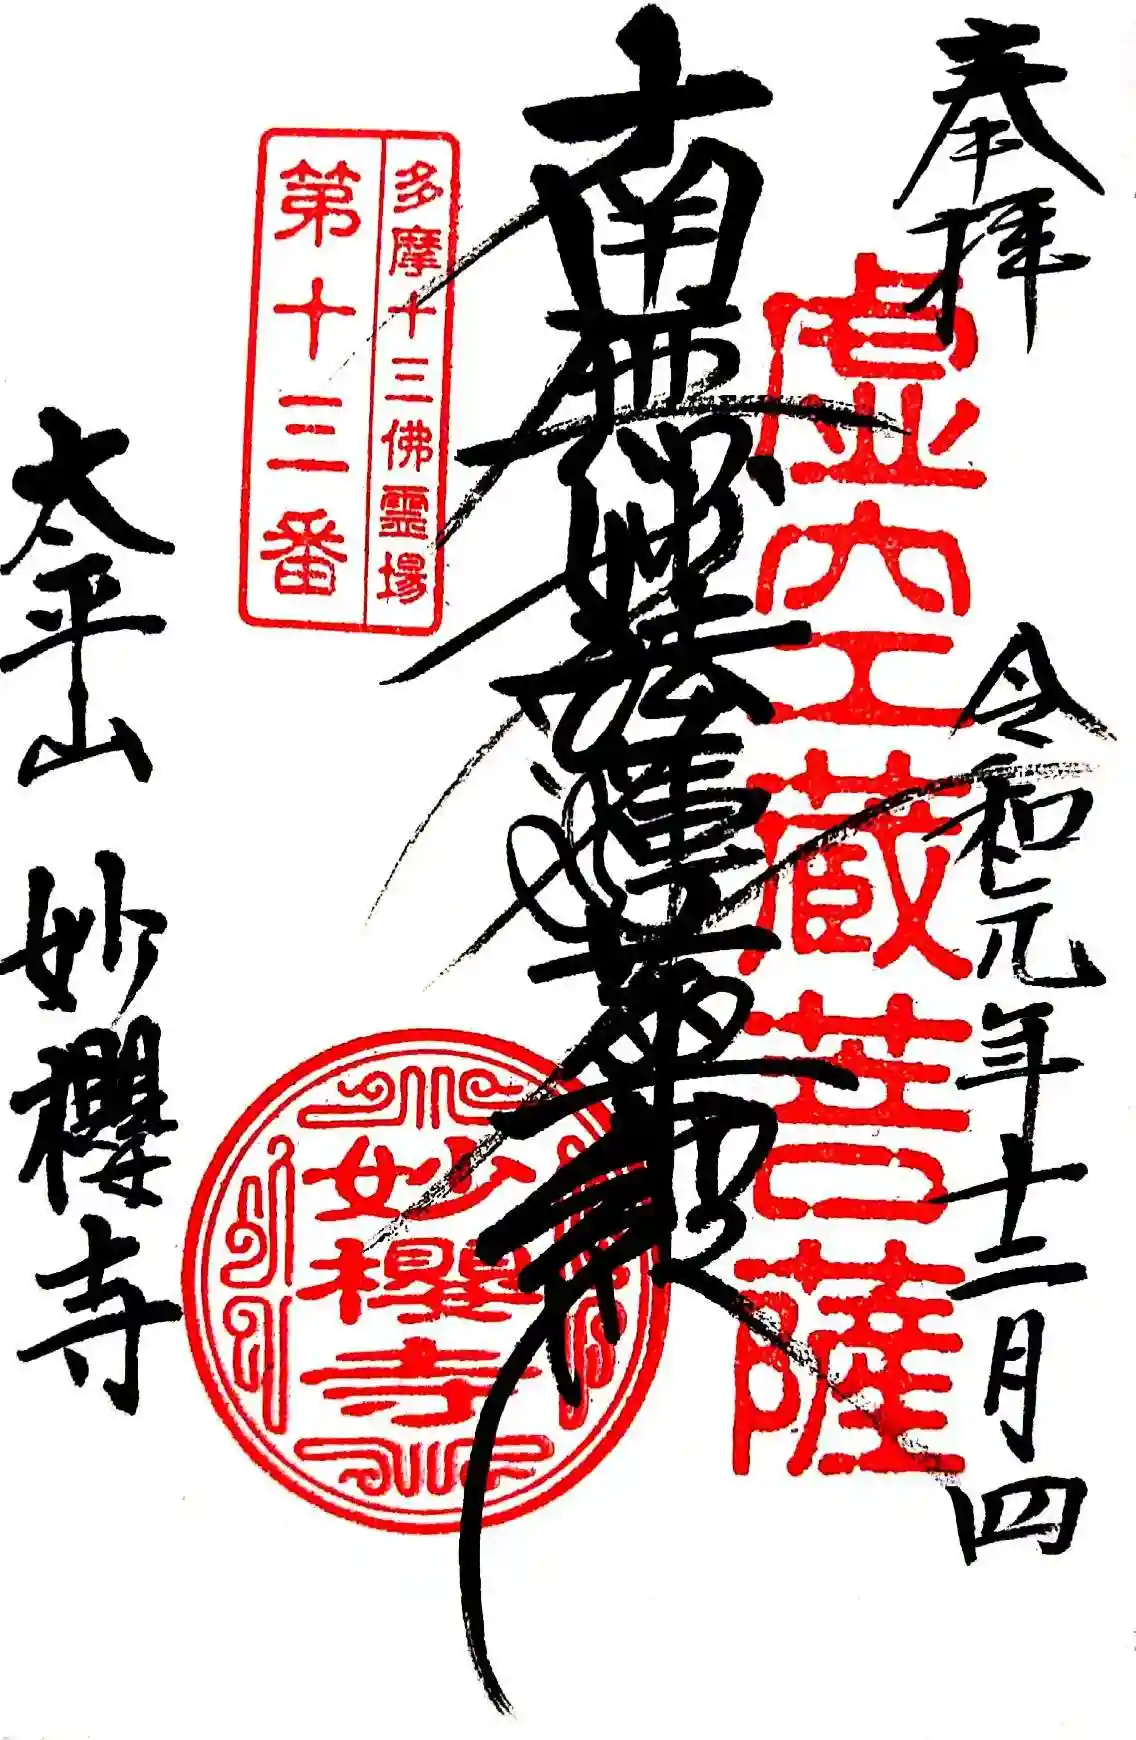 奉拝
令和元年十二月四
虚空蔵菩薩
南無妙法蓮華經
多摩十三佛霊場
第十三番
妙櫻寺
太平山 妙櫻寺